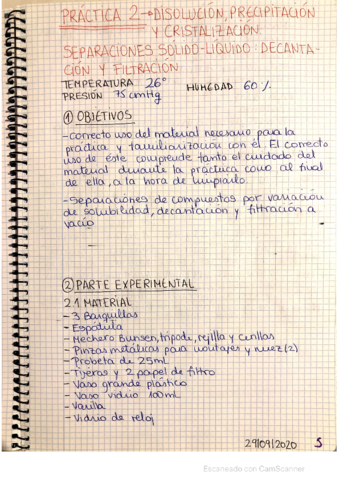 PRÁCTICA 2 → DISOLUCIÓN, PRECIPITACIÓN
Y CRISTALIZACIÓN.
SEPARACIONES SÓLIDO-LÍQUIDO: DECANTA-
CIÓN Y FILTRACIÓN.
TEMPERATURA 26° HUMEDAD 60 %
PRESIÓN 75 cmHg
① OBJETIVOS
- Correcto uso del material necesario para la
práctica y familiarización con él. El correcto
uso de éste comprende tanto el cuidado del
material durante la práctica como al final
de ella, a la hora de limpiarlo.
- Separaciones de compuestos por variación
de solubilidad, decantación y filtración a
vacío
② PARTE EXPERIMENTAL
2.1 MATERIAL
- 3 Barquillas
- Espátula
- Mechero Bunsen, trípode, rejilla y cerillas
- Pinzas metálicas para montajes y nuez (2)
- Probeta de 25mL
- Tijeras y 2 papel de filtro
- Vaso grande plástico
- Vaso vidrio 100mL
- Varilla
- Vidrio de reloj
29/09/2020 5
Escaneado con CamScanner